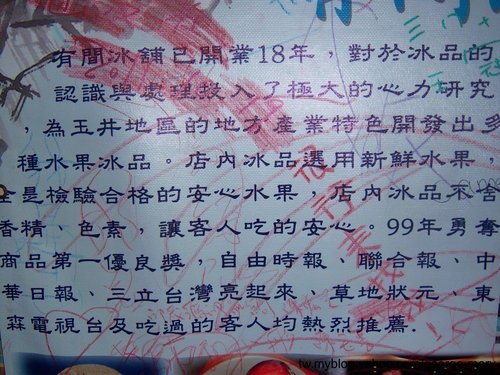 有間冰舖已開業18年，對於冰品的
認識與處理投入了極大的心力研究
，為玉井地區的地方產業特色開發出多
種水果冰品。店內冰品選用新鮮水果，
全是檢驗合格的安心水果，店內冰品不含
香精、色素，讓客人吃的安心。99年勇奪
商品第一優良獎，自由時報、聯合報、中
華日報、三立台灣亮起來、草地狀元、東
森電視台及吃過的客人均熱烈推薦.